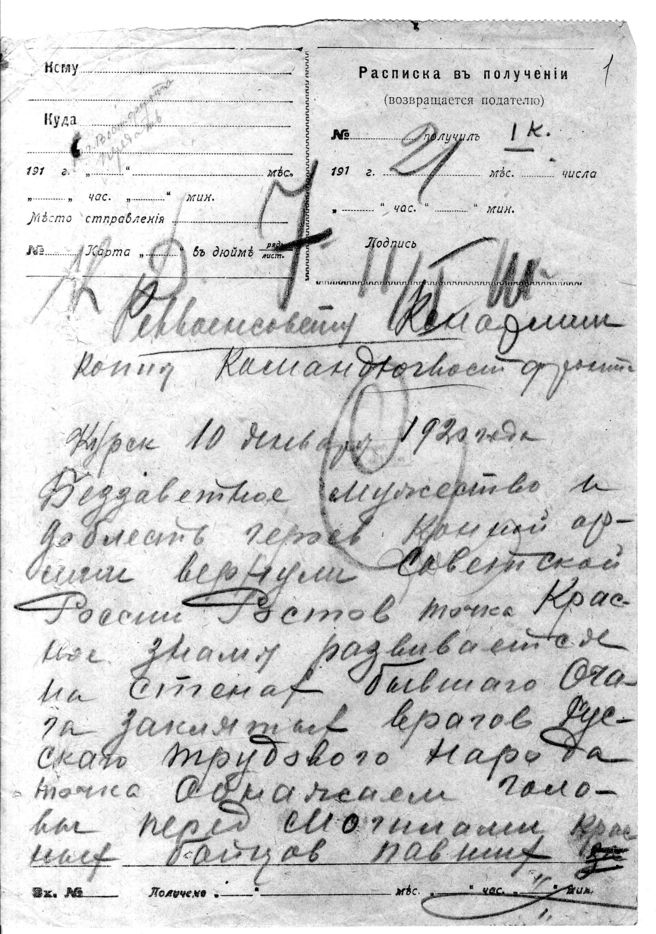 Кому
Куда
191 г. „ “ мѣс.
„ “ час. „ “ мин.
Мѣсто отправленія
№ Карта „ “ въ дюймѣ
Расписка въ полученіи
(возвращается подателю)
№ получилъ 1 к.
191 г. 21 мѣс. числа
„ “ час. „ “ мин.
Подпись
1
Реввоенсовету Конармии
копия Командюгвостфронта
Курск 10 января 1920 года
Беззаветное мужество и
доблесть героев Конной ар-
мии вернули Советской
России Ростов точка Крас-
ное знамя развивается
на стенах бывшаго Оча-
га заклятых врагов Рус-
скаго трудового народа
точка Обнажаем голо-
вы перед могилами крас
ных бойцов павших
Вх. № Получено „ “ мѣс. „ “ час. „ “ мин.